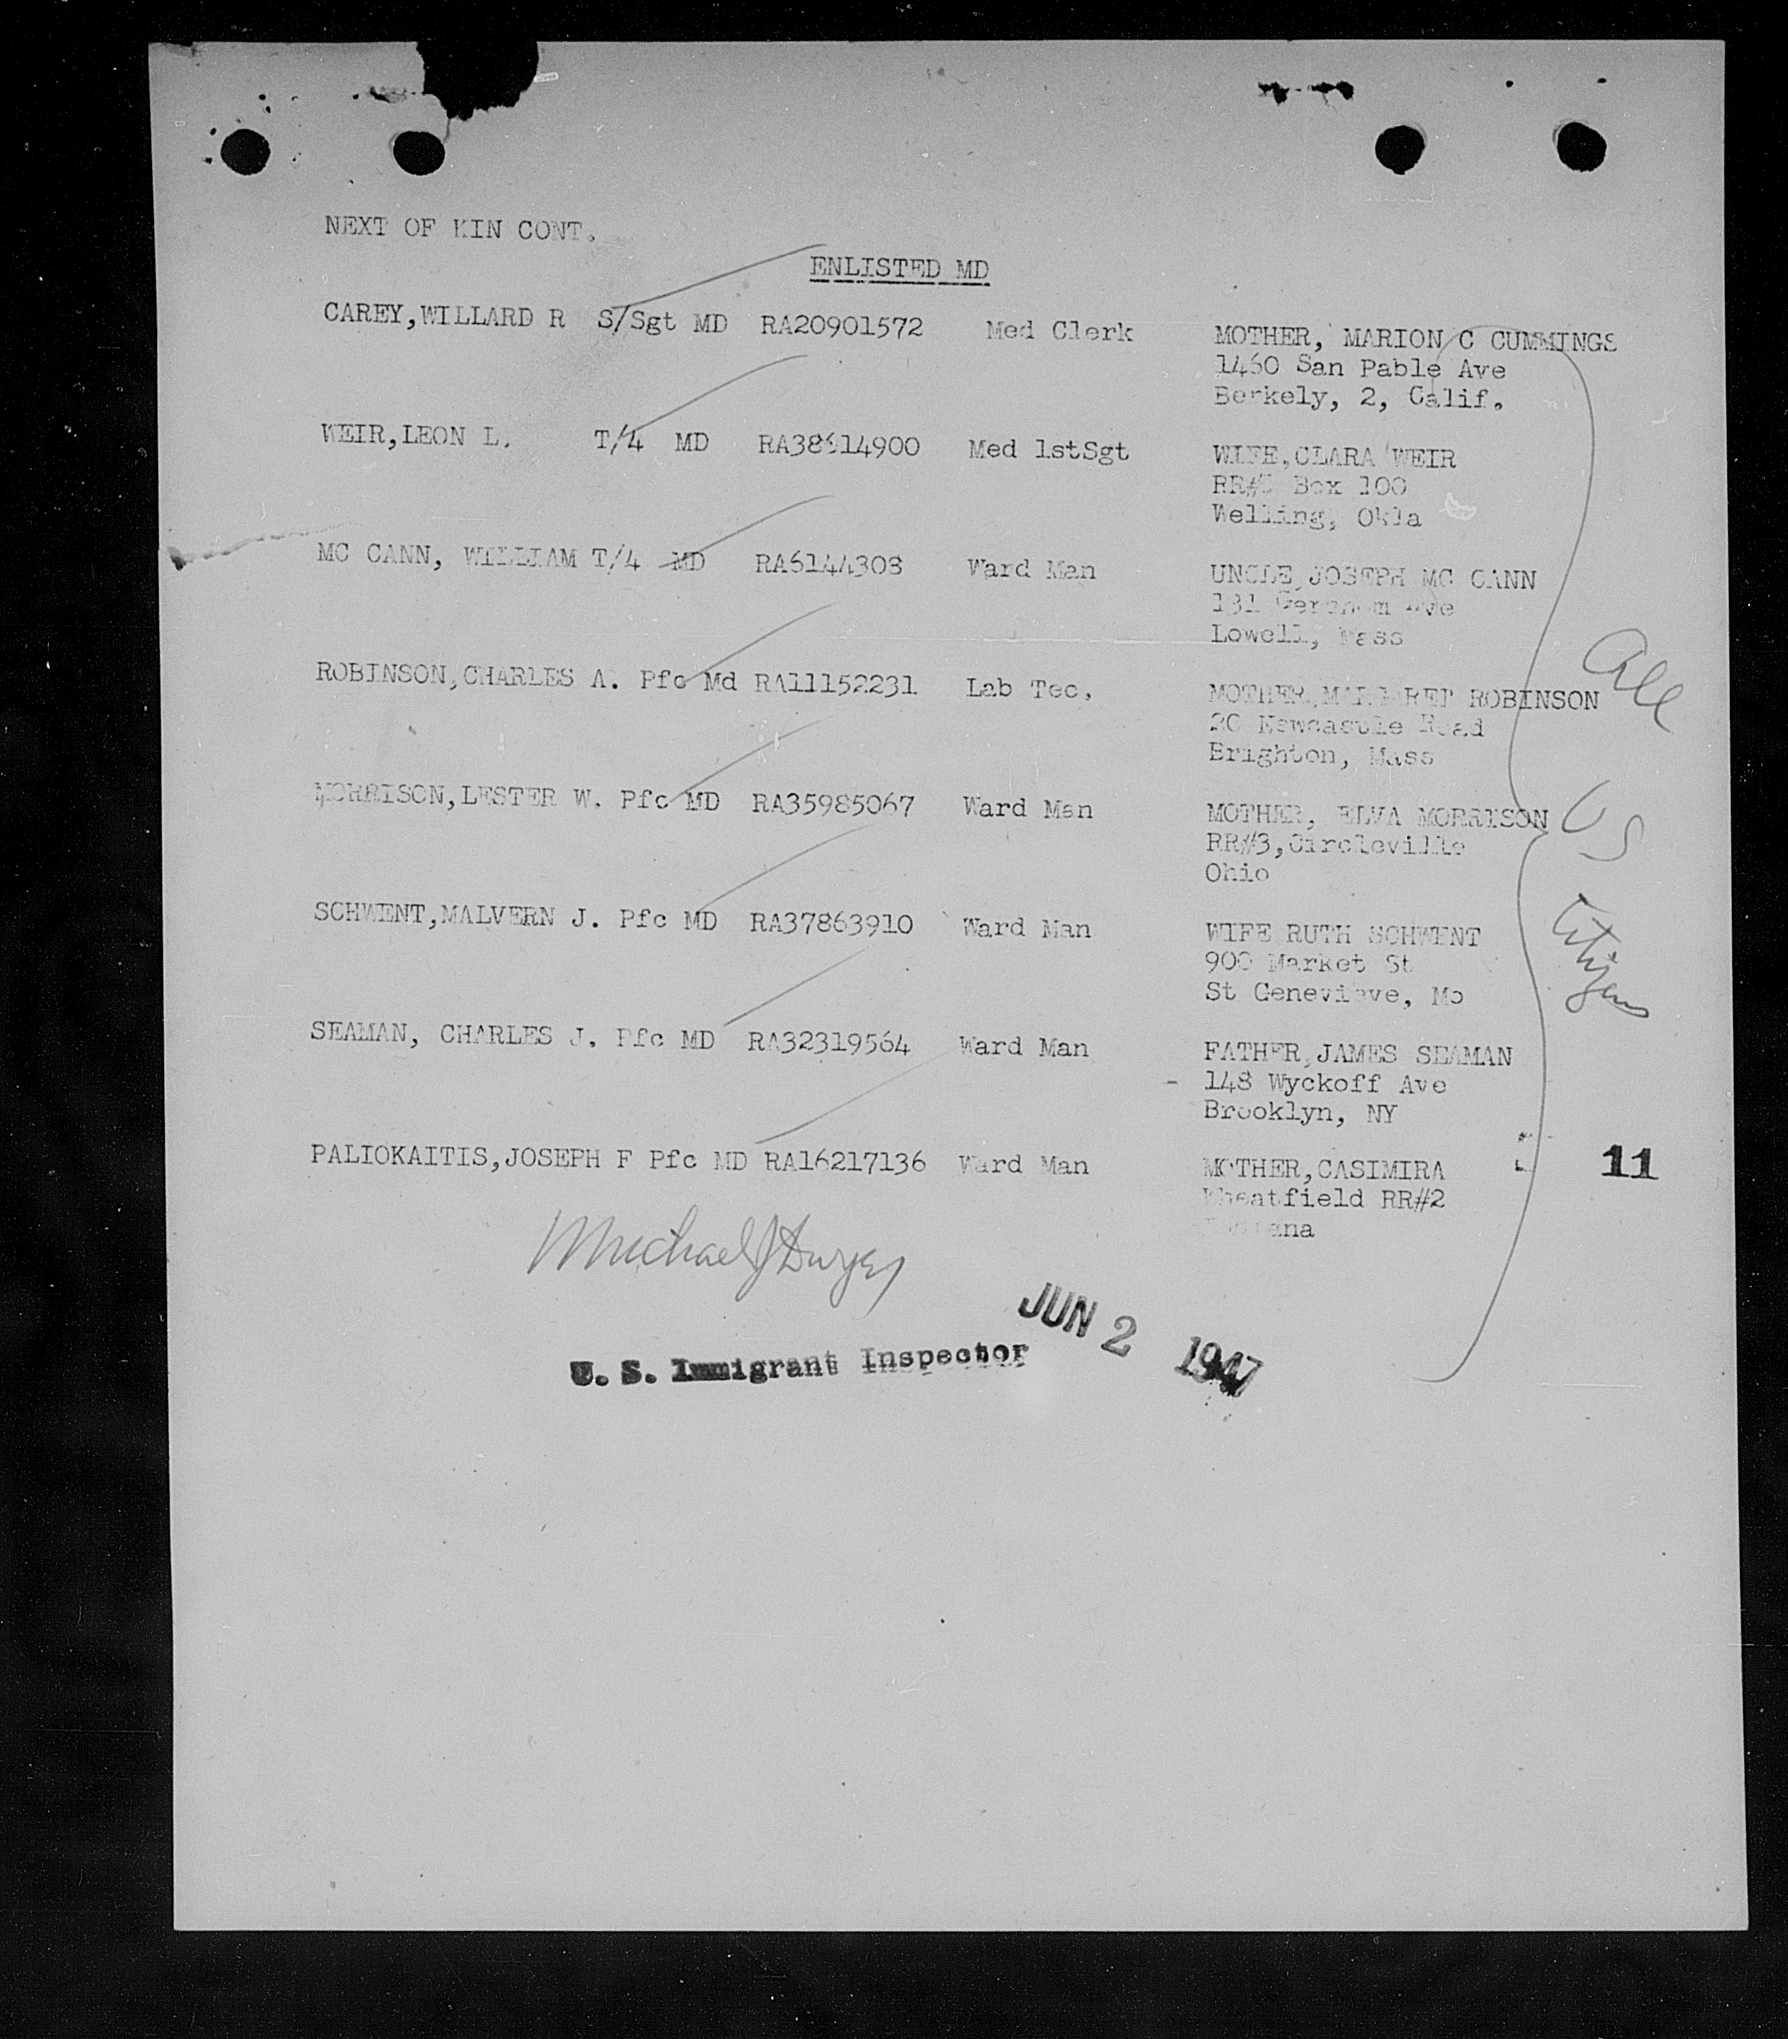 NEXT OF KIN CONT.
ENLISTED MD
CAREY,WILLARD R S/Sgt MD RA20901572 Med Clerk MOTHER, MARION C CUMMINGS
1460 San Pable Ave
Berkely, 2, Calif.
WEIR,LEON L. T/4 MD RA38614900 Med 1stSgt WIFE,CLARA WEIR
Box 100
Welling, Okla
MC CANN, WILLIAM T/4 MD RA6144308 Ward Man UNCLE,JOSEPH MC CANN
131 Ave
Lowell, Mass
ROBINSON,CHARLES A. Pfc Md RA11152231 Lab Tec, MOTHER,MARGARET ROBINSON
20 Newcastle Road
Brighton, Mass
MORRISON,LESTER W. Pfc MD RA35985067 Ward Man MOTHER, ELVA MORRISON
RR#3,Circleville
Ohio
SCHWENT,MALVERN J. Pfc MD RA37863910 Ward Man WIFE RUTH SCHWENT
900 Market St
St Genevieve, Mo
SEAMAN, CHARLES J. Pfc MD RA32319564 Ward Man FATHER,JAMES SEAMAN
148 Wyckoff Ave
Brooklyn, NY
PALIOKAITIS,JOSEPH F Pfc MD RA16217136 Ward Man MOTHER,CASIMIRA
Wheatfield RR#2
Indiana
All
US
Citizens
11
Michael J Dwyer
JUN 2 1947
U. S. Immigrant Inspector